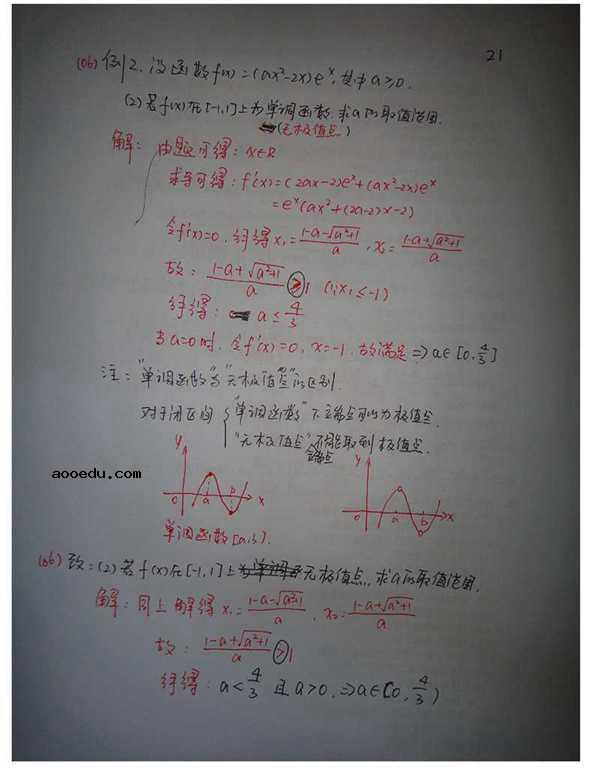 21
(06) 例2. 设函数f(x)=(ax²-2x)eˣ, 其中a≥0.
(2) 若f(x)在[-1,1]上为单调函数, 求a的取值范围.
(无极值点)
解: 由题可得: x∈R
求导可得: f'(x)=(2ax-2)eˣ+(ax²-2x)eˣ
=eˣ(ax²+(2a-2)x-2)
令f'(x)=0, 解得x₁=(1-a-√(a²+1))/a, x₂=(1-a+√(a²+1))/a
故: (1-a+√(a²+1))/a ≥1 (∵x₁≤-1)
解得: a≤4/3
当a=0时, 令f'(x)=0, x=-1, 故满足 ⇒a∈[0,4/3]
注: "单调函数"与"无极值点"的区别.
对于闭区间 { "单调函数"下端点可以为极值点.
"无极值点"不能取到极值点.
端点
y y
aooedu.com
0 a b x 0 a b x
单调函数[a,b].
(06) 改: (2) 若f(x)在[-1,1]上无极值点, 求a的取值范围.
解: 同上解得x₁=(1-a-√(a²+1))/a, x₂=(1-a+√(a²+1))/a
故: (1-a+√(a²+1))/a >1
解得: a<4/3 且a>0, ⇒a∈[0,4/3)